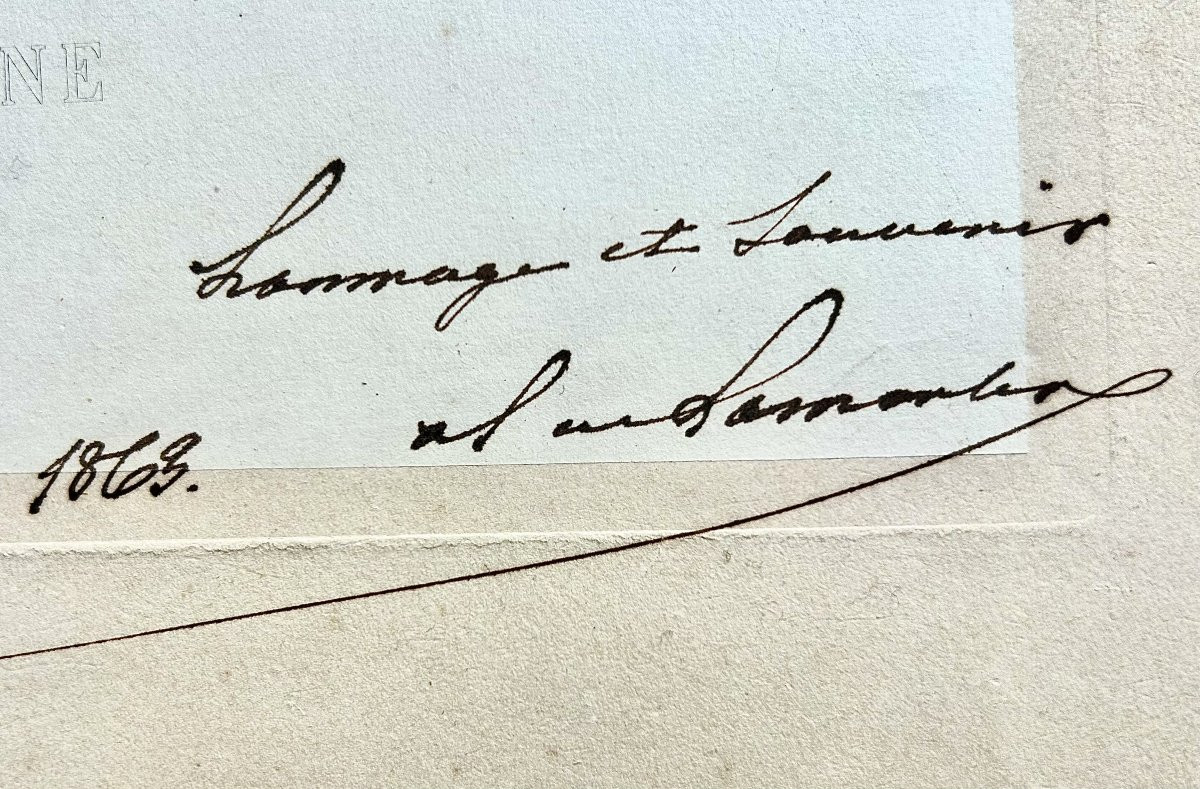 NE
hommage et Souvenir
al de Lamartine
1863.